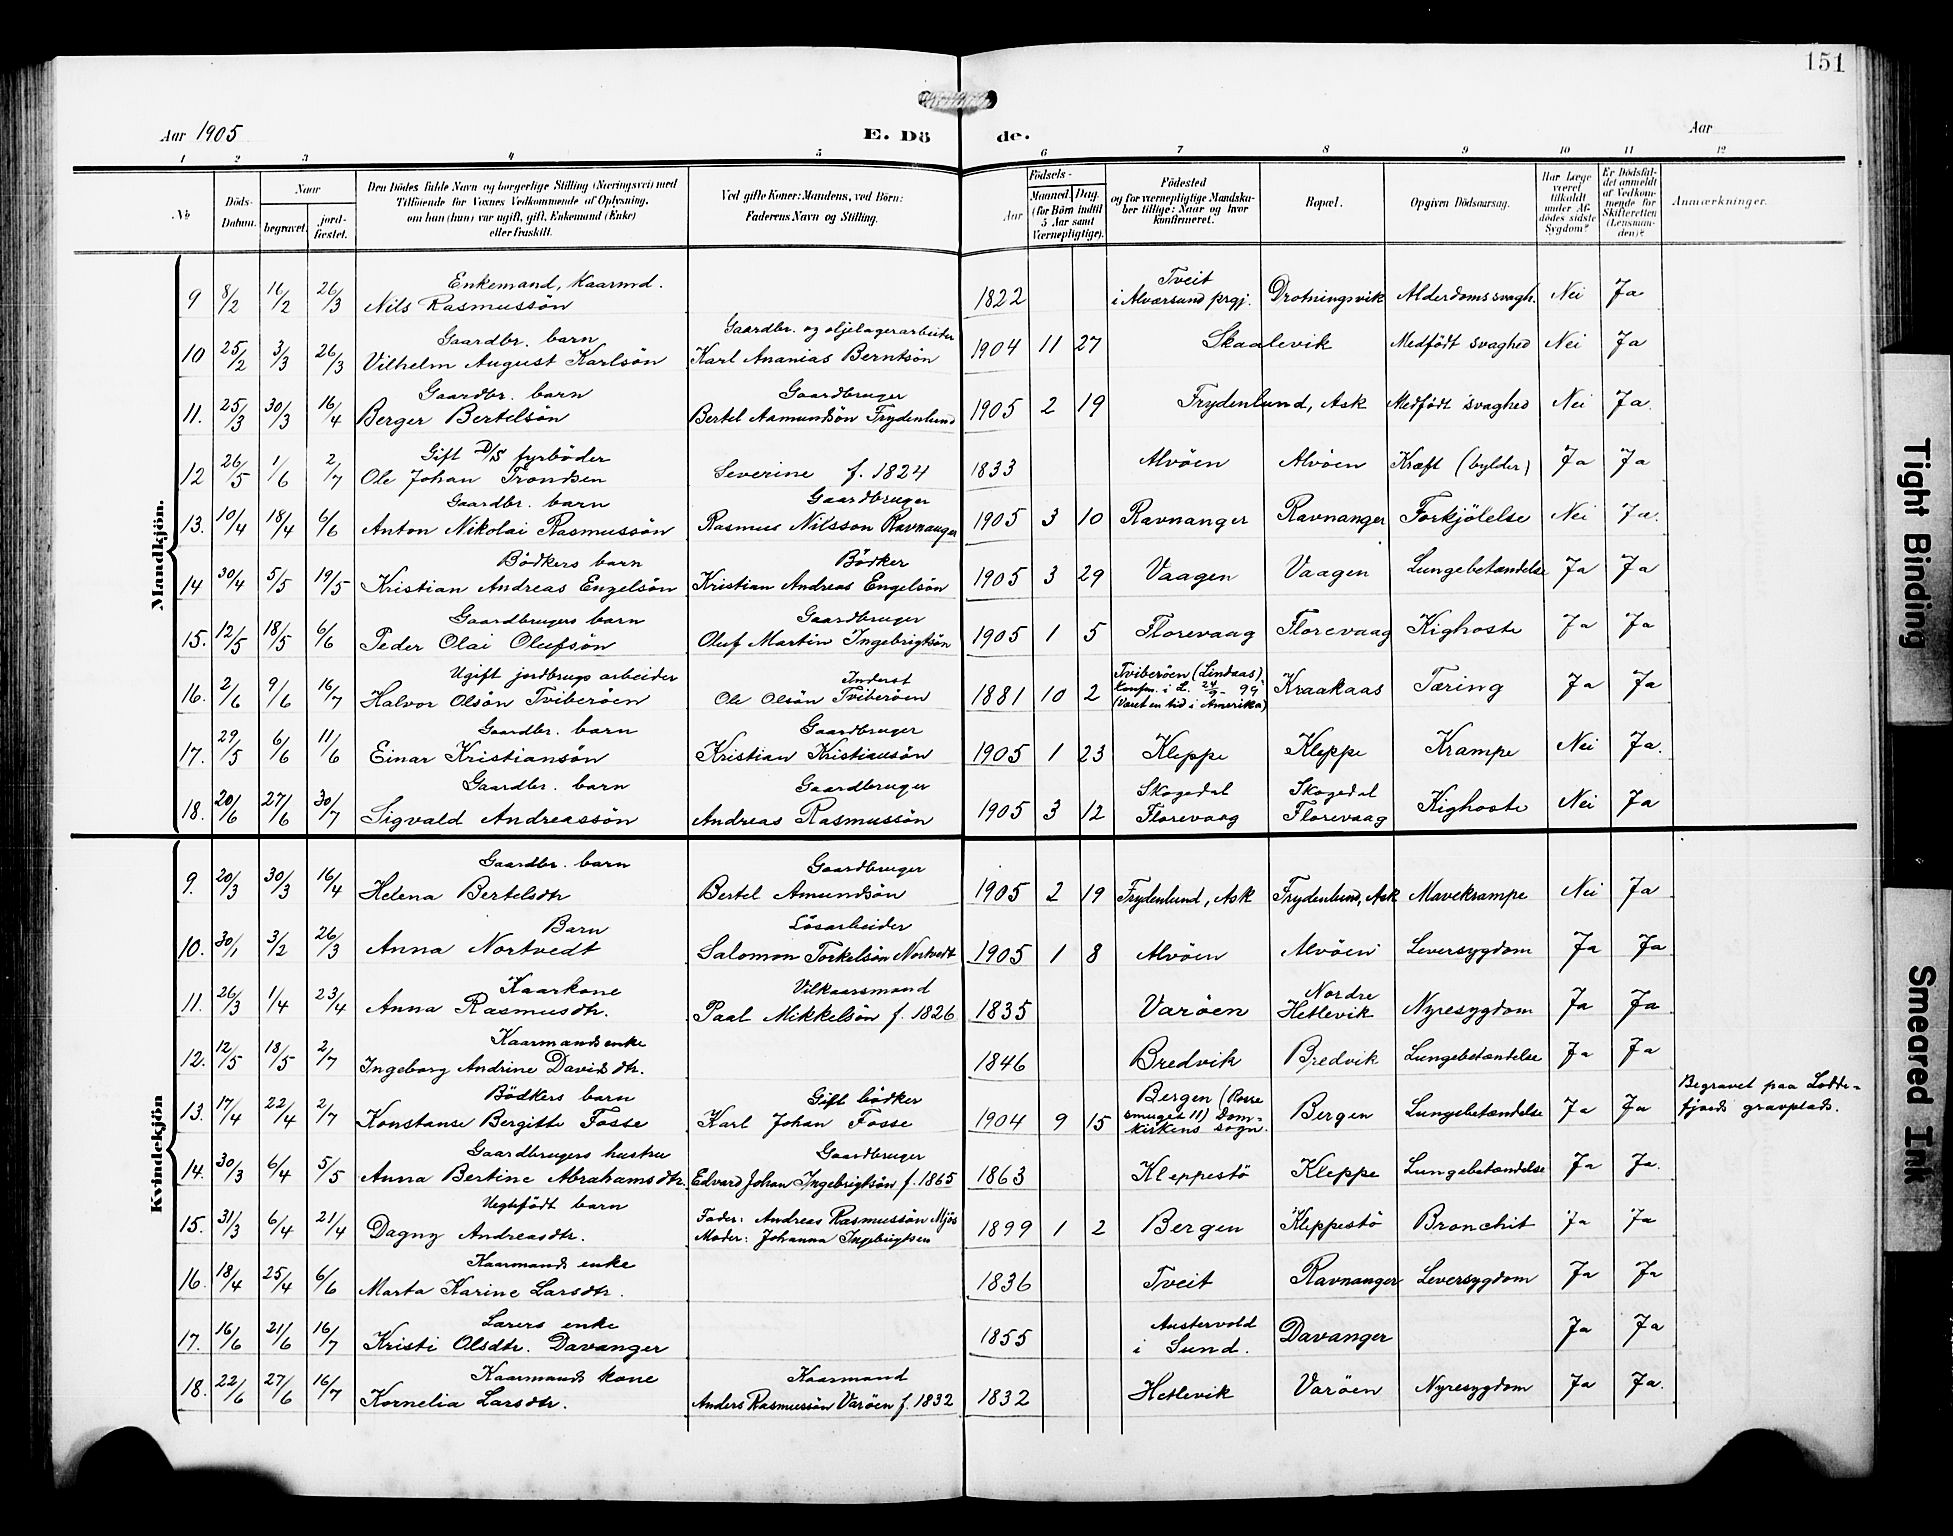 151
Aar 1905 E. Dö de. Aar
1 2 3 4 5 6 7 8 9 10 11 12
No. Döds-Datum. Naar begravet. jord-fæstet. Den Dödes fulde Navn og borgerlige Stilling (Næringsvei) med Tilföiende for Voxnes Vedkommende af Oplysning, om han (hun) var ugift, gift, Enkemand (Enke) eller fraskilt. Ved gifte Koner: Mandens, ved Börn: Faderens Navn og Stilling. Födsels- Aar Maaned Dag. (for Börn indtil 5 Aar samt Værnepligtige). Födested og for værnepligtige Mandskaber tillige: Naar og hvor konfirmeret. Bopæl. Opgiven Dödsaarsag. Har Læge været tilkaldt under Afdödes sidste Sygdom? Er Dödsfaldet anmeldt af Vedkommende for Skifteretten (Lensmanden)? Anmærkninger.
Mandkjön.
9 8/2 16/2 26/3 Enkemand, Kaarmd. Nils Rasmussön 1822 Tveit i Alværsund prgj. Drotningsvik Alderdomssvagh. Nei Ja
10 25/2 3/3 26/3 Gaardbr. barn Vilhelm August Karlsön Gaardbr. og oljelagerarbeider Karl Ananias Berntsön 1904 11 27 Skaalevik Medfödt svaghed Nei Ja
11. 25/3 30/3 16/4 Gaardbr. barn Berger Bertelsön Gaardbruger Bertel Aamundsön Frydenlund 1905 2 19 Frydenlund, Ask Medfödt svaghed Nei Ja.
12 26/5 1/6 2/7 Gift D/S fyrböder Ole Johan Trondsen Severine f. 1824 1833 Alvöen Alvöen Kræft (bylder) Ja Ja
13. 10/4 18/4 6/6 Gaardbr. barn Anton Nikolai Rasmussön Gaardbruger Rasmus Nilsson Ravnanger 1905 3 10 Ravnanger Ravnanger Forkjölelse Nei Ja.
14 30/4 5/5 19/5 Bödkers barn Kristian Andreas Engelsön Bödker Kristian Andreas Engelsön 1905 3 29 Vaagen Vaagen Lungebetændelse Ja Ja
15. 12/5 18/5 6/6 Gaardbrugers barn Peder Olai Olufsön Gaardbruger Oluf Martin Ingebrigtsön 1905 1 5 Florevaag Florevaag Kighoste Ja Ja
16. 2/6 9/6 16/7 Ugift jordbrugs arbeider Halvor Olsön Tviberöen Inderst Ole Olsön Tviberöen 1881 10 2 Tviberöen (Lindaas) Konfm. i L. 24/9 - 99 (Været en tid i Amerika) Kraakaas Tæring Ja Ja
17. 29/5 6/6 11/6 Gaardbr. barn Einar Kristiansön Gaardbruger Kristian Kristiansön 1905 1 23 Kleppe Kleppe Krampe Nei Ja.
18. 20/6 27/6 30/7 Gaardbr. barn Sigvald Andreassön Gaardbruger Andreas Rasmussön 1905 3 12 Skogedal Florevaag Skogedal Florevaag Kighoste Nei Ja
Kvindekjön
9. 20/3 30/3 16/4 Gaardbr. barn Helena Bertelsdtr Gaardbruger Bertel Amundsön 1905 2 19 Frydenlund, Ask Frydenlund, Ask Mavekrampe Nei Ja
10. 30/1 3/2 26/3 Barn Anna Nortvedt Lösarbeider Salomon Torkelsön Nortvedt 1905 1 8 Alvöen Alvöen Leversygdom Ja Ja
11. 26/3 1/4 23/4 Kaarkone Anna Rasmusdtr. Vilkaarsmand Paal Mikkelsön f. 1826 1835 Varöen Nordre Hetlevik Nyresygdom Ja Ja
12. 12/5 18/5 2/7 Kaarmands enke Ingeborg Andrine Davidsdtr. 1846 Bredvik Bredvik Lungebetændelse Ja Ja
13. 17/4 22/4 2/7 Bödkers barn Konstanse Bergitte Fosse Gift bödker Karl Johan Fosse 1904 9 15 Bergen (Rosse smuget 11) Domkirkens sogn. Bergen Lungebetændelse Ja Ja Begravet paa Loddefjords gravplads.
14. 30/3 6/4 5/5 Gaardbrugers hustru Anna Bertine Abrahamsdtr. Gaardbruger Edvard Johan Ingebrigtsön f. 1865 1863 Kleppestö Kleppe Lungebetændelse Ja Ja.
15. 31/3 6/4 21/4 Uegtefödt barn Dagny Andreasdtr. Fader: Andreas Rasmussön Mjös Moder: Johanna Ingebrigtsen 1899 1 2 Bergen Kleppestö Bronchit Ja Ja
16. 18/4 25/4 6/6 Kaarmands enke Marta Karine Larsdtr. 1836 Tveit Ravnanger Leversygdom Ja Ja
17. 16/6 21/6 16/7 Lærers enke Kristi Olsdtr. Davanger 1855 Austervold i Sund. Davanger Ja Ja
18. 22/6 27/6 16/7 Kaarmands kone Kornelia Larsdtr. Kaarmand Anders Rasmussön Varöen f. 1832 1832 Hetlevik Varöen Nyresygdom Ja Ja.
Tight Binding
Smeared Ink